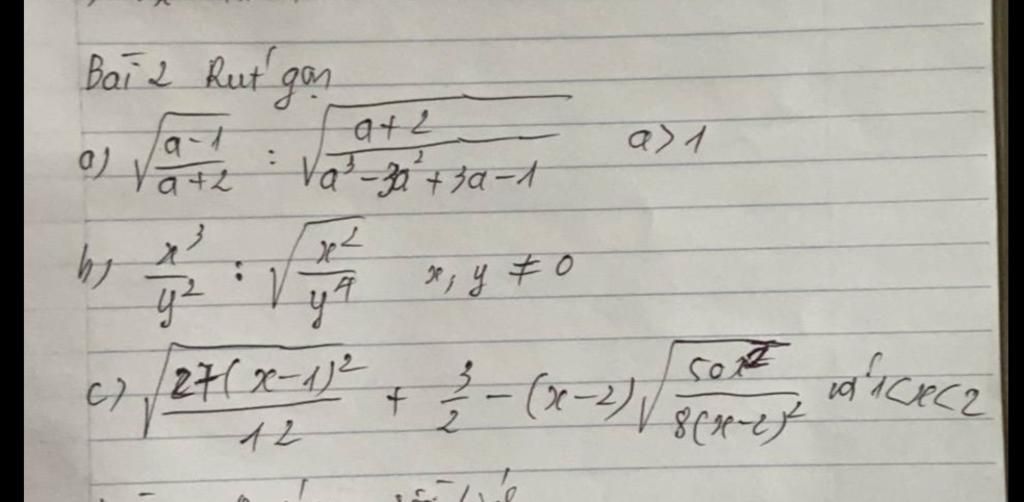 Bài 2 Rút gọn
a) √((a-1)/(a+2)) : √((a+2)/(a³-3a²+3a-1)) a>1
b) x³/y² : √(x²/y⁴) x, y ≠ 0
c) √(27(x-1)²/12) + 3/2 - (x-2)√(50x²/(8(x-2)²)) với 1<x<2